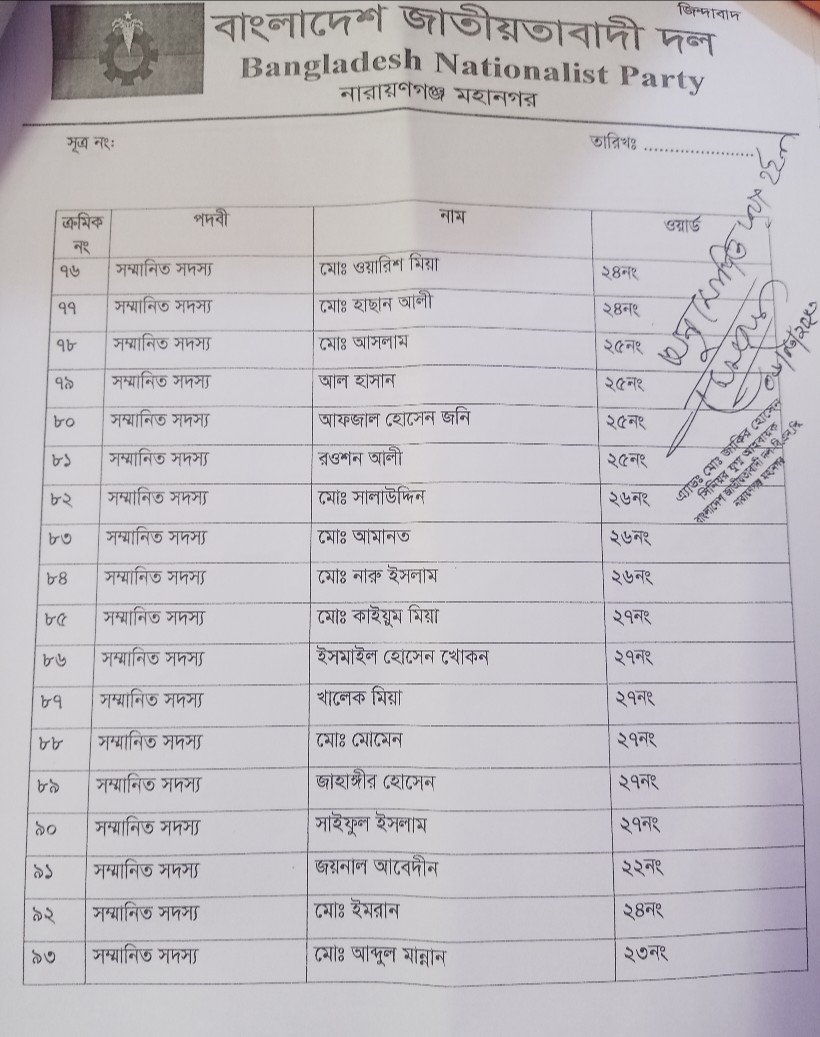 জিন্দাবাদ
বাংলাদেশ জাতীয়তাবাদী দল
Bangladesh Nationalist Party
নারায়ণগঞ্জ মহানগর
সূত্র নং:
তারিখঃ ......................
ক্রমিক নং পদবী নাম ওয়ার্ড
৭৬ সম্মানিত সদস্য মোঃ ওয়ারিশ মিয়া ২৪নং
৭৭ সম্মানিত সদস্য মোঃ হাছান আলী ২৪নং
৭৮ সম্মানিত সদস্য মোঃ আসলাম ২৫নং
৭৯ সম্মানিত সদস্য আল হাসান ২৫নং
৮০ সম্মানিত সদস্য আফজাল হোসেন জনি ২৫নং
৮১ সম্মানিত সদস্য রওশন আলী ২৫নং
৮২ সম্মানিত সদস্য মোঃ সালাউদ্দিন ২৬নং
৮৩ সম্মানিত সদস্য মোঃ আমানত ২৬নং
৮৪ সম্মানিত সদস্য মোঃ নারু ইসলাম ২৬নং
৮৫ সম্মানিত সদস্য মোঃ কাইয়ুম মিয়া ২৭নং
৮৬ সম্মানিত সদস্য ইসমাইল হোসেন খোকন ২৭নং
৮৭ সম্মানিত সদস্য খালেক মিয়া ২৭নং
৮৮ সম্মানিত সদস্য মোঃ মোমেন ২৭নং
৮৯ সম্মানিত সদস্য জাহাঙ্গীর হোসেন ২৭নং
৯০ সম্মানিত সদস্য সাইফুল ইসলাম ২৭নং
৯১ সম্মানিত সদস্য জয়নাল আবেদীন ২২নং
৯২ সম্মানিত সদস্য মোঃ ইমরান ২৪নং
৯৩ সম্মানিত সদস্য মোঃ আব্দুল মান্নান ২৩নং
এ্যাডঃ মোঃ জাকির হোসেন
সিনিয়র যুগ্ম আহবায়ক
বাংলাদেশ জাতীয়তাবাদী দল বি.এন.পি
নারায়ণগঞ্জ মহানগর